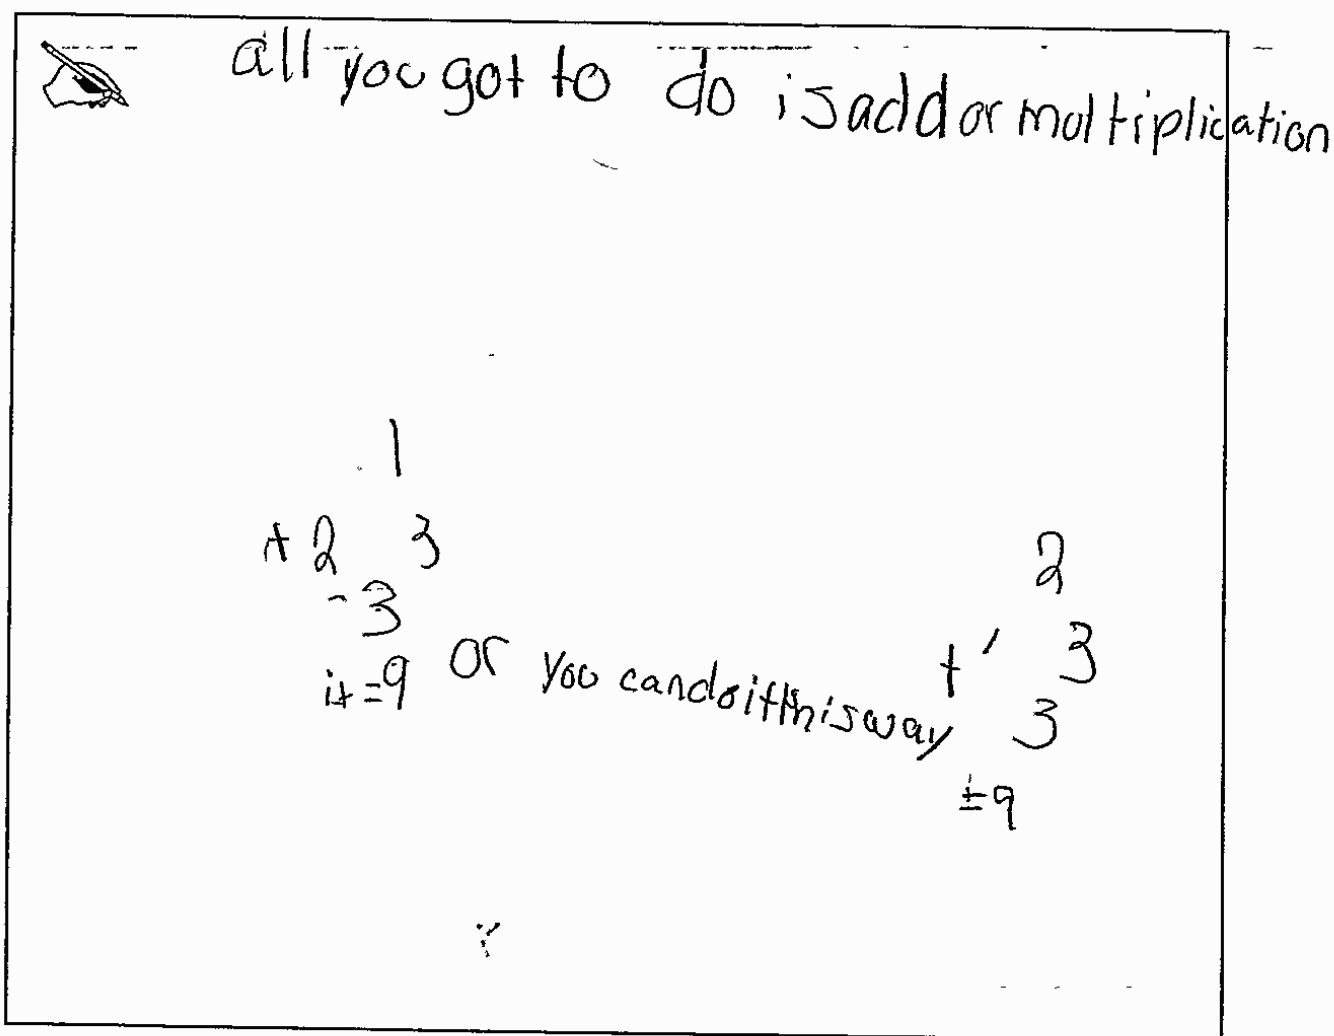 all you got to do is add or moltiplication
1
+ 2 3
- 3
it = 9 or you can do it this way
2
+ ' 3
3
± 9